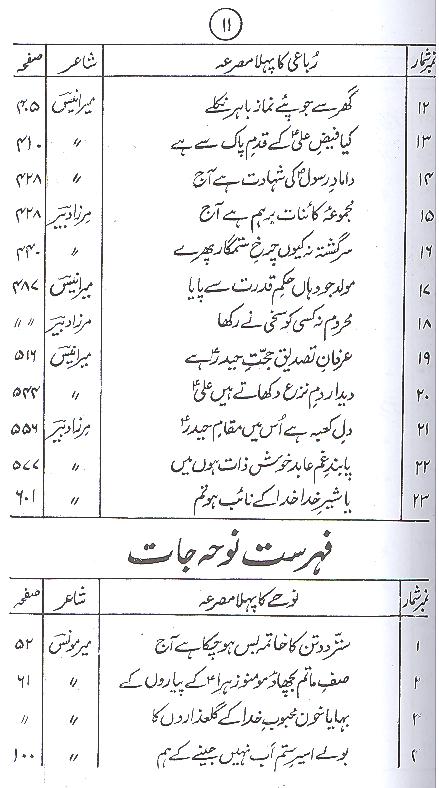 ۱۱
نمبر شمار رُباعی کا پہلا مصرعہ شاعر صفحہ
۱۲ گھر سے جو پئے نماز باہر نکلے میر انیسؔ ۴۰۵
۱۳ کیا فیض علیؑ کے قدمِ پاک سے ہے 〃 ۴۱۰
۱۴ دامادِ رسولؐ کی شہادت ہے آج 〃 ۴۲۸
۱۵ مجموعۂ کائنات برہم ہے آج مرزا دبیرؔ ۴۲۸
۱۶ سرگشتہ نہ کیوں چرخِ ستمگار پھرے 〃 ۴۴۰
۱۷ مولد جو وہاں حکمِ قدرت سے پایا میر انیسؔ ۴۸۷
۱۸ محروم نہ کسی کو سخی نے رکھا مرزا دبیرؔ 〃 〃
۱۹ عرفانِ تصدیق حجتِ حیدرؑ ہے میر انیسؔ ۵۱۶
۲۰ دیدار دمِ نزع دکھاتے ہیں علیؑ 〃 ۵۴۴
۲۱ دل کعبہ ہے اُس میں مقامِ حیدرؑ مرزا دبیرؔ ۵۵۶
۲۲ پابندِ غم عابدِ خوش ذات ہوں میں 〃 ۵۷۷
۲۳ یا شیرِ خدا خدا کے نائب ہو تم 〃 ۶۰۱
فہرست نوحہ جات
نمبر شمار نوحے کا پہلا مصرعہ شاعر صفحہ
۱ ستّر دو تن کا خاتمہ بس ہو چکا ہے آج میر مونسؔ ۵۲
۲ صفِ ماتم بچھاؤ مومنو زہراؑ کے پیاروں کے 〃 ۶۱
۳ بہایا خون محبوبِ خدا کے گلعذاروں کا 〃 〃
۴ بولے اسیرِ ستم اَب نہیں جینے کے ہم 〃 ۱۰۰